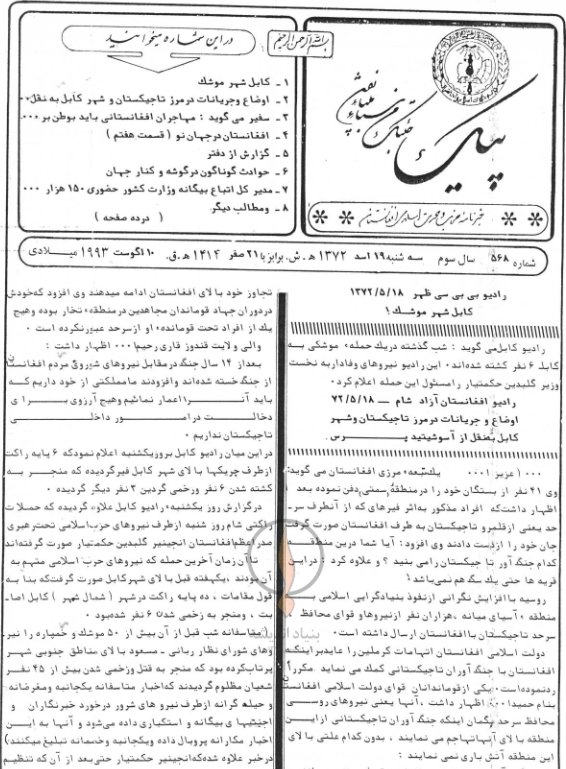 بسم الله الرحمن الرحیم
در این شماره میخوانید
۱ - کابل شهر موشك
۲ - اوضاع وجریانات در مرز تاجیکستان و شهر کابل به نقل۰۰
۳ - سفیر می گوید : مهاجران افغانستانی باید بوطن بر ۰۰۰
۴ - افغانستان درجهان نو ( قسمت هفتم )
۵ - گزارش از دفتر
۶ - حوادث گوناگون درگوشه و کنار جهان
۷ - مدیر کل اتباع بیگانه وزارت کشور حضوری ۱۵۰ هزار ۰۰۰
۸ - ومطالب دیگر
( درده صفحه )
پیك
خبرنامه
شماره ۵۶۸ سال سوم سه شنبه ۱۹ اسد ۱۳۷۲ ه . ش. برابر با ۲۱ صفر ۱۴۱۴ ه . ق. ۱۰ اگوست ۱۹۹۳ میلادی
رادیو بی بی سی ظهر ۱۳۷۲/۵/۱۸
کابل شهر موشك !
رادیو کابل می گوید : شب گذشته دریك حمله ٔ موشکی به
کابل ۶ نفر کشته شده اند۰ این رادیو نیروهای وفادار به نخست
وزیر گلبدین حکمتیار را مسئول این حمله اعلام کرد۰
رادیو افغانستان آزاد شام — ۷۲/۵/۱۸
اوضاع و جریانات در مرز تاجیکستان وشهر
کابل به نقل از آسوشیتید پرس ۰
۰۰۰ ( عزیز ۰۰۰۱ یك تبعه ٔ مرزی افغانستان می گوید:
وی ۴۱ نفر از بستگان خود را در منطقه ٔ سمتی دفن نموده بعد
اظهار داشت که افراد مذکور به اثر فیرهای که از آنطرف سر-
حد یعنی از قلمرو تاجیکستان به طرف افغانستان صورت گرفت
جان خود را ازدست دادند وی افزود : آیا شما درین منطقه
کدام جنگ آور تاجیکستان را می بنید ؟ و علاوه کرد : در این
قریه ها حتی یك سگ هم نمی باشد !
روسیه با افزایش نگرانی از نفوذ بنیادگرایی اسلامی به
منطقه ٔ آسیای میانه ،هزاران نفر از نیروها و قوای محافظ
سرحد تاجیکستان با افغانستان ارسال داشته است۰
دولت اسلامی افغانستان اتهامات کرملین را عایدبر اینکه
افغانستان با جنگ آوران تاجیکستانی کمك می نماید مکررا
رد نموده است۰ یکی از قوماندانان قوای دولت اسلامی افغانستان
بنام حمید ۰۰۰ اظهار داشت ، آنها یعنی نیروهای روسی
محافظ سرحد بگمان اینکه جنگ آوران تاجیکستانی از این
منطقه با لای آنهاتهاجم می نمایند ، بدون کدام علتی با لای
این منطقه آتش باری نمی نمایند :
تجاوز خود با لای افغانستان ادامه میدهند وی افزود که خودش
در دوران جهاد قوماندان مجاهدین در منطقه ٔ تخار بوده وهیچ
یك از افراد تحت قومانده ٔ او از سرحد عبورنکرده است ۰
والی ولایت قندوز قاری رحیم ۰۰۰۱ اظهار داشت :
بعداز ۱۴ سال جنگ در مقابل نیروهای شوروی مردم افغانستان
از جنگ خسته شده اند وافزودند ما مملکتی از خود داریم که
باید آنرا اعمار نمائیم وهیچ آرزوی برای
دخالت در امور داخلی
تاجیکستان نداریم ۰
در این میان رادیو کابل بروز یکشنبه اعلام نمودکه ۶ پایه راکت
از طرف چریکها با لای شهر کابل فیر گردیده که منجر به
کشته شدن ۶ نفر وزخمی گردین ۳ نفر دیگر گردیده ۰
درگزارش روز یکشنبه ٔ رادیو کابل علاوه گردیده که حملات
راکتی شام روز شنبه از طرف نیروهای حزب اسلامی تحت رهبری
صدراعظم افغانستان انجینیر گلبدین حکمتیار صورت گرفته اند
تا آن زمان آخرین حمله که نیروهای حزب اسلامی متهم به
آن بودند ،یکهفته قبل با لای شهر کابل صورت گرفت که بنا به
قول مقامات ، ده پایه راکت در شهر ( شمال شهر ) کابل اصا-
بت ، ومنجر به زخمی شدن ۶ نفر شده بود ۰
متاسفانه شب قبل از آن بیش از ۵۰ موشك و خمپاره را نیر-
وهای شورای نظار ربانی - مسعود با لای مناطق جنوبی شهر
پرتاب کرده بود که منجر به قتل وزخمی شدن بیش از ۴۵ نفر
شعیان مظلوم گردیدند که اخبار متاسفانه یکجانبه ومغرضانه
و حیله گرانه از طرف نیرو های شرور در خورد خبرنگاران و
اجنبیهای بیگانه و استکباری داده می شود و آنها به این
اخبار مکارانه پروبال داده ویکجانبه وخصمانه تبلیغ میکنند!)
درخبر علاوه شده که انجینیر حکمتیار حتی بعد از آن که تنظیم